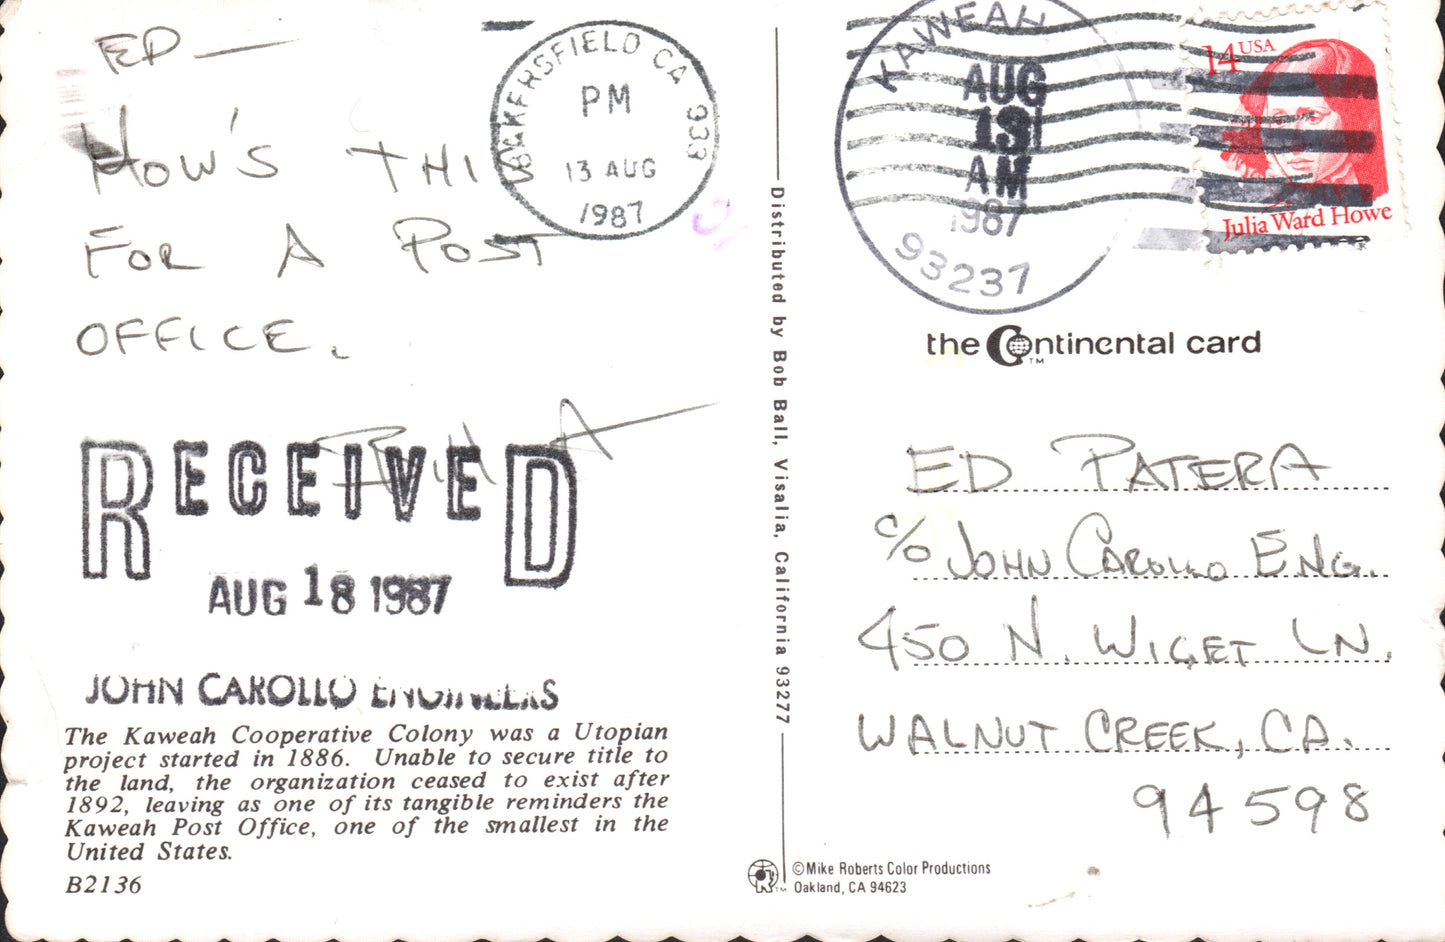 ED —
HOW'S THIS
FOR A POST
OFFICE.
BAKERSFIELD CA 933
PM
13 AUG
1987
RECEIVED
AUG 18 1987
JOHN CAROLLO ENGINEERS
The Kaweah Cooperative Colony was a Utopian
project started in 1886. Unable to secure title to
the land, the organization ceased to exist after
1892, leaving as one of its tangible reminders the
Kaweah Post Office, one of the smallest in the
United States.
B2136
Distributed by Bob Ball, Visalia, California 93277
KAWEAH
AUG
13
AM
1987
93237
14 USA
Julia Ward Howe
the Continental card
TM
ED PATERA
c/o JOHN CAROLLO ENG.
450 N. WIGET LN.
WALNUT CREEK, CA.
94598
©Mike Roberts Color Productions
Oakland, CA 94623
TM